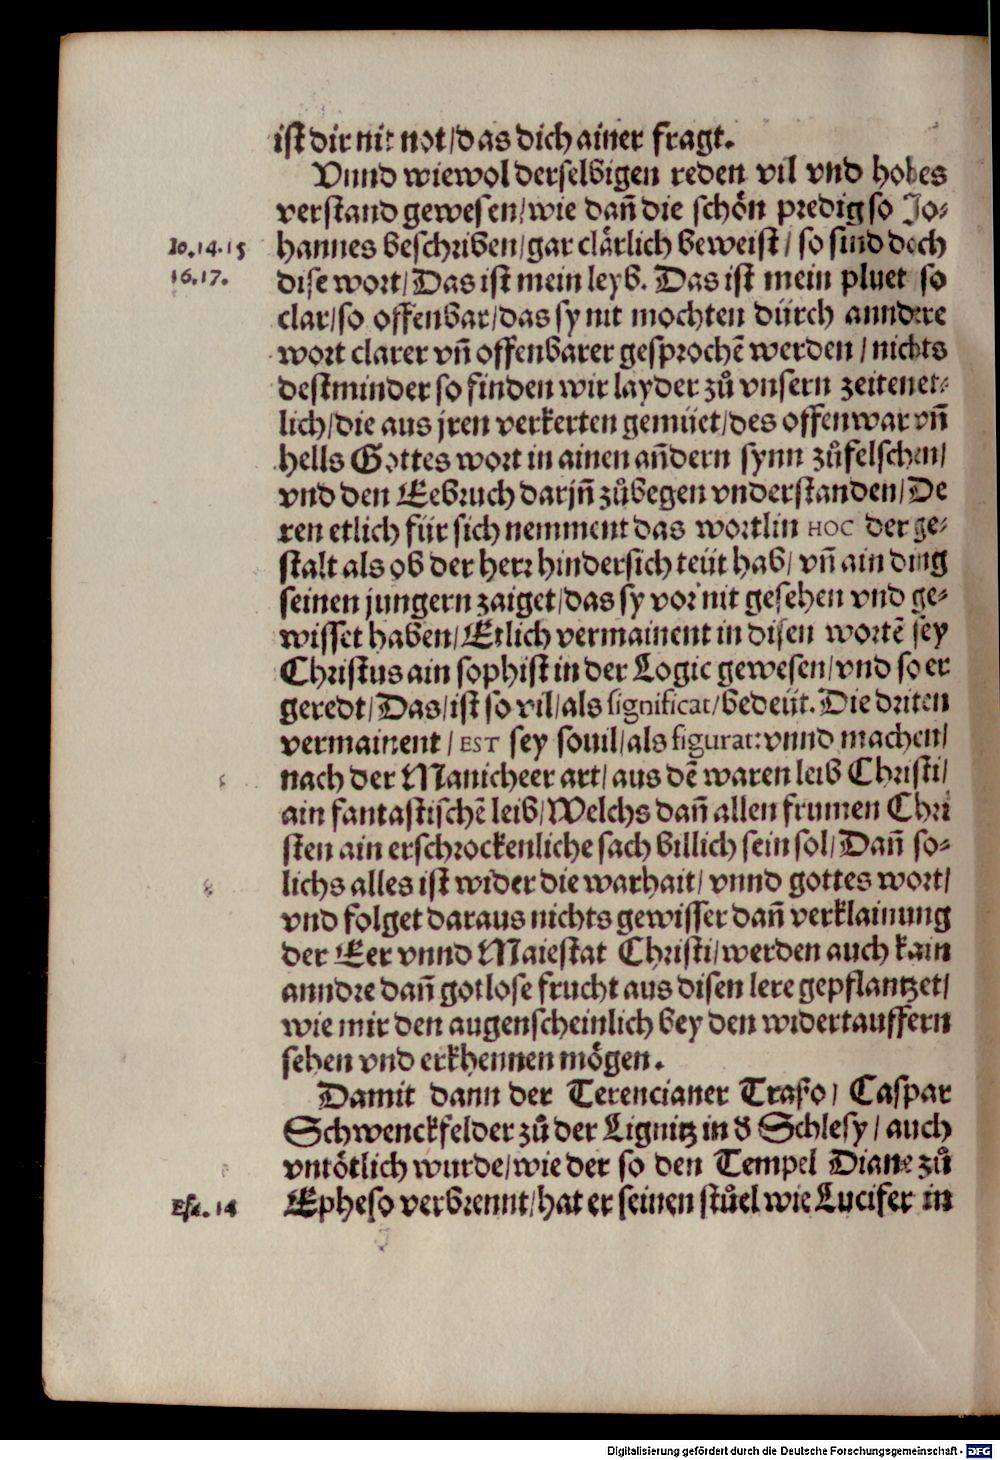 ist dir nit not/das dich ainer fragt.
Vnnd wiewol derselbigen reden vil vnd hohes
verstand gewesen/wie dañ die schön predig so Jo⸗
Io.14.15 hannes beschriben/gar clärlich beweist/ so sind doch
16.17. dise wort/Das ist mein leyb. Das ist mein pluet so
clar/so offenbar/das sy nit mochten dürch anndere
wort clarer vñ offenbarer gesprochē werden/nichts
destminder so finden wir layder zů vnsern zeiten et⸗
lich/die aus jren verkerten gemüet/des offenwar vñ
hells Gottes wort in ainen añdern synn zůfelschen/
vnd den Eebruch darjñ zůbegen vnderstanden/De
ren etlich für sich nemment das wortlin HOC der ge⸗
stalt als ob der herr hindersich teüt hab/ vñ ain ding
seinen jungern zaiget/das sy vor nit gesehen vnd ge⸗
wisset haben/Etlich vermainent in disen wortē sey
Christus ain sophist in der Logic gewesen/vnd so er
geredt/Das/ist so vil/als significat/bedeüt. Die driten
vermainent/EST sey souil/als figurat:vnnd machen/
nach der Manicheer art/aus dē waren leib Christi/
ain fantastischē leib/Welchs dañ allen frumen Chri
sten ain erschrockenliche sach billich sein sol/Dañ so⸗
lichs alles ist wider die warhait/ vnnd gottes wort/
vnd folget daraus nichts gewisser dañ verklainung
der Eer vnnd Maiestat Christi/werden auch kain
anndre dañ gotlose frucht aus disen lere gepflantzet/
wie mir den augenscheinlich bey den widertauffern
sehen vnd erkhennen mögen.
Damit dann der Terencianer Traso/ Caspar
Schwenckfelder zů der Lignitz in d Schlesy/auch
vntötlich wurde/wie der so den Tempel Diane zů
Esa.14 Epheso verbrennt/hat er seinen stůel wie Lucifer in
Digitalisierung gefördert durch die Deutsche Forschungsgemeinschaft - DFG